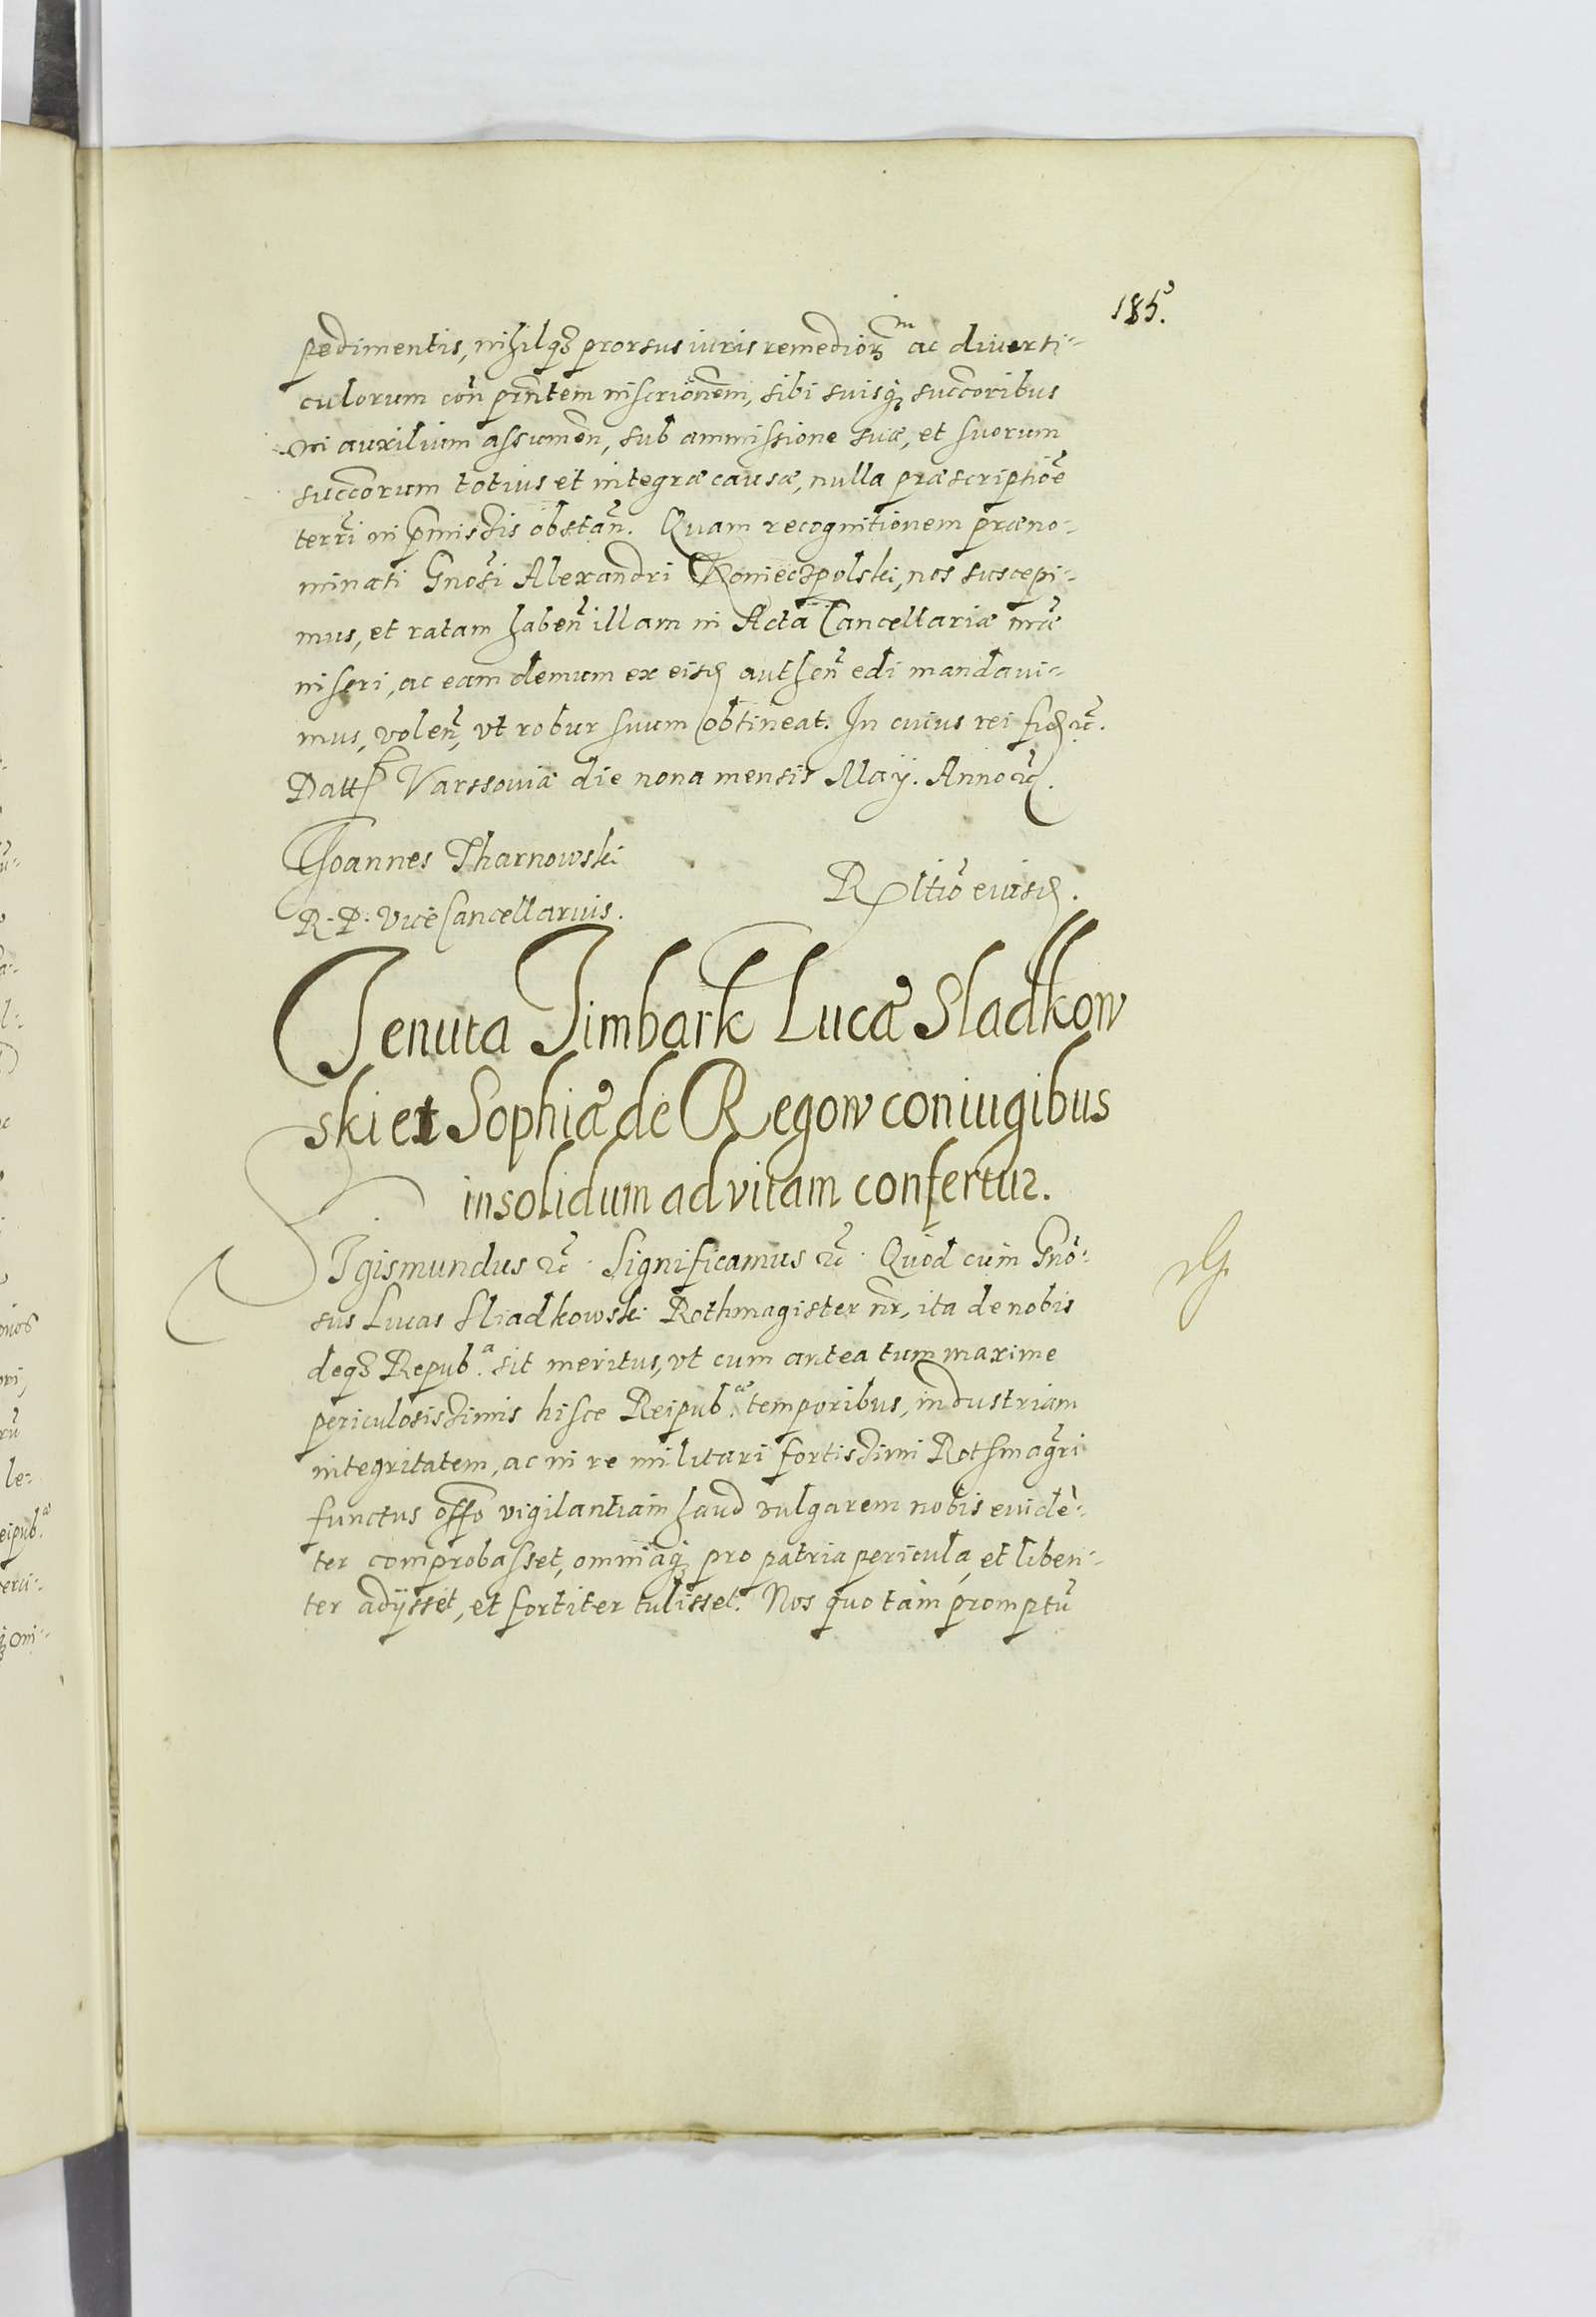 185.
pedimentis, nihilq₃ prorsus iuris remedior̃ m ac diverti-
culorum con̄ prn̄tem inscrion̄em, sibi suisq₃ succoribus
in auxilium assumen̄, sub ammissione suæ, et suorum
succorum totius et integræ causæ, nulla præscriptiōe
terrr̄i in p̄missis obstan̄. Quam recognitionem præno-
minati Gnosi Alexandri Konieczpolski, nos suscepi-
mus, et ratam haben̄ illam in Acta Cancellariæ nr̄æ
inseri, ac eam demum ex eisd authen̄ edi mandavi-
mus, volen̄, vt robur suum obtineat. In cuius rei fid ꝛc̄.
Datt Varssoviæ die nona mensis Maÿ. Anno ꝛc.
Joannes Tharnowski
R. P. Vice Cancellarius.
Rltiō eiusd.
Tenuta Timbark Lucæ Sladkow
ski et Sophiæ de Regow coniugibus
insolidum ad vitam confertur.
Igismundus ꝛc̄. Significamus ꝛc̄. Quod cum Gnō-
sus Lucas Sliadkowski Rothmagister nr̄, ita de nobis
deq₃ Repub.ᵃ sit meritus, vt cum antea tum maxime
periculosissimis hisce Reipub.ᵃᵉ temporibus, industriam
integritatem, ac in re militari fortissimi Rothmagr̄i
functus offō vigilantiam haud vulgarem nobis evidē-
ter comprobasset, omniaq₃ pro patria pericula, et liben-
ter adÿsset, et fortiter tulisset. Nos quo tam promptū